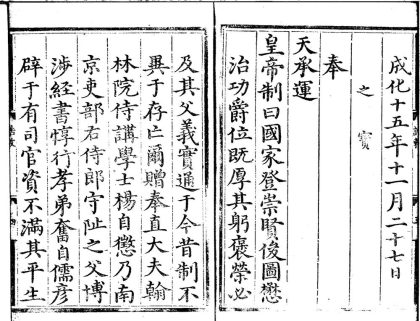 成化十五年十一月二十七日
之寶
奉
天承運
皇帝制曰國家登崇賢俊圖懋
治功爵位既厚其躬褒榮必
及其父義實通于今昔制不
異于存亡爾贈奉直大夫翰
林院侍講學士楊自懲乃南
京吏部右侍郎守阯之父博
涉經書惇行孝弟奮自儒彦
辟于有司官資不滿其平生